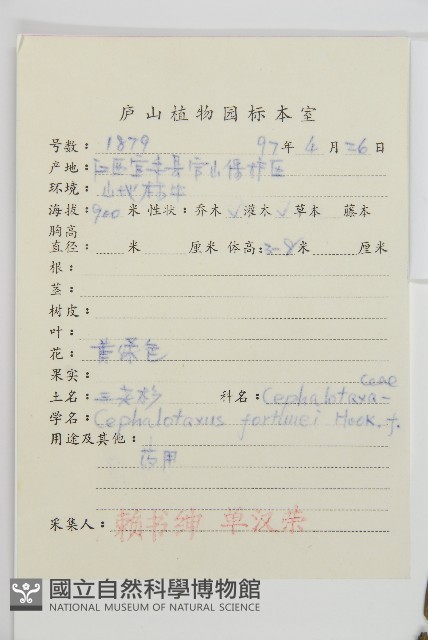 庐山植物园标本室
号数：1879 97年4月26日
产地：江西宜丰县官山保护区
环境：山地林中
海拔：900米 性状：乔木√灌木√草本 藤本
胸高
直径：米 厘米 体高：3-8米 厘米
根：
茎：
树皮：
叶：
花：黄绿色
果实：
土名：三尖杉 科名：Cephalotaxa-
ceae
学名：Cephalotaxus fortunei Hook. f.
用途及其他：
药用
采集人：赖书绅 单汉荣
國立自然科學博物館
NATIONAL MUSEUM OF NATURAL SCIENCE